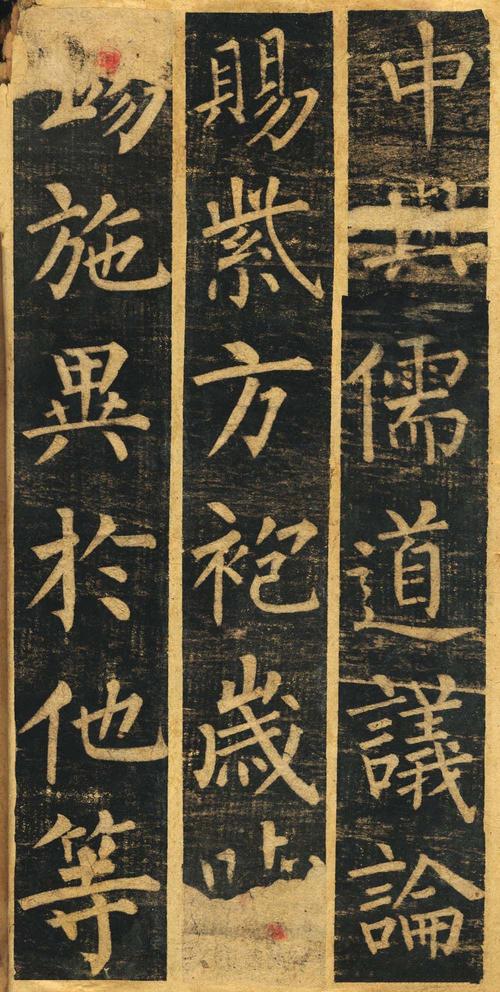 中與儒道議論
賜紫方袍歲
施異於他等